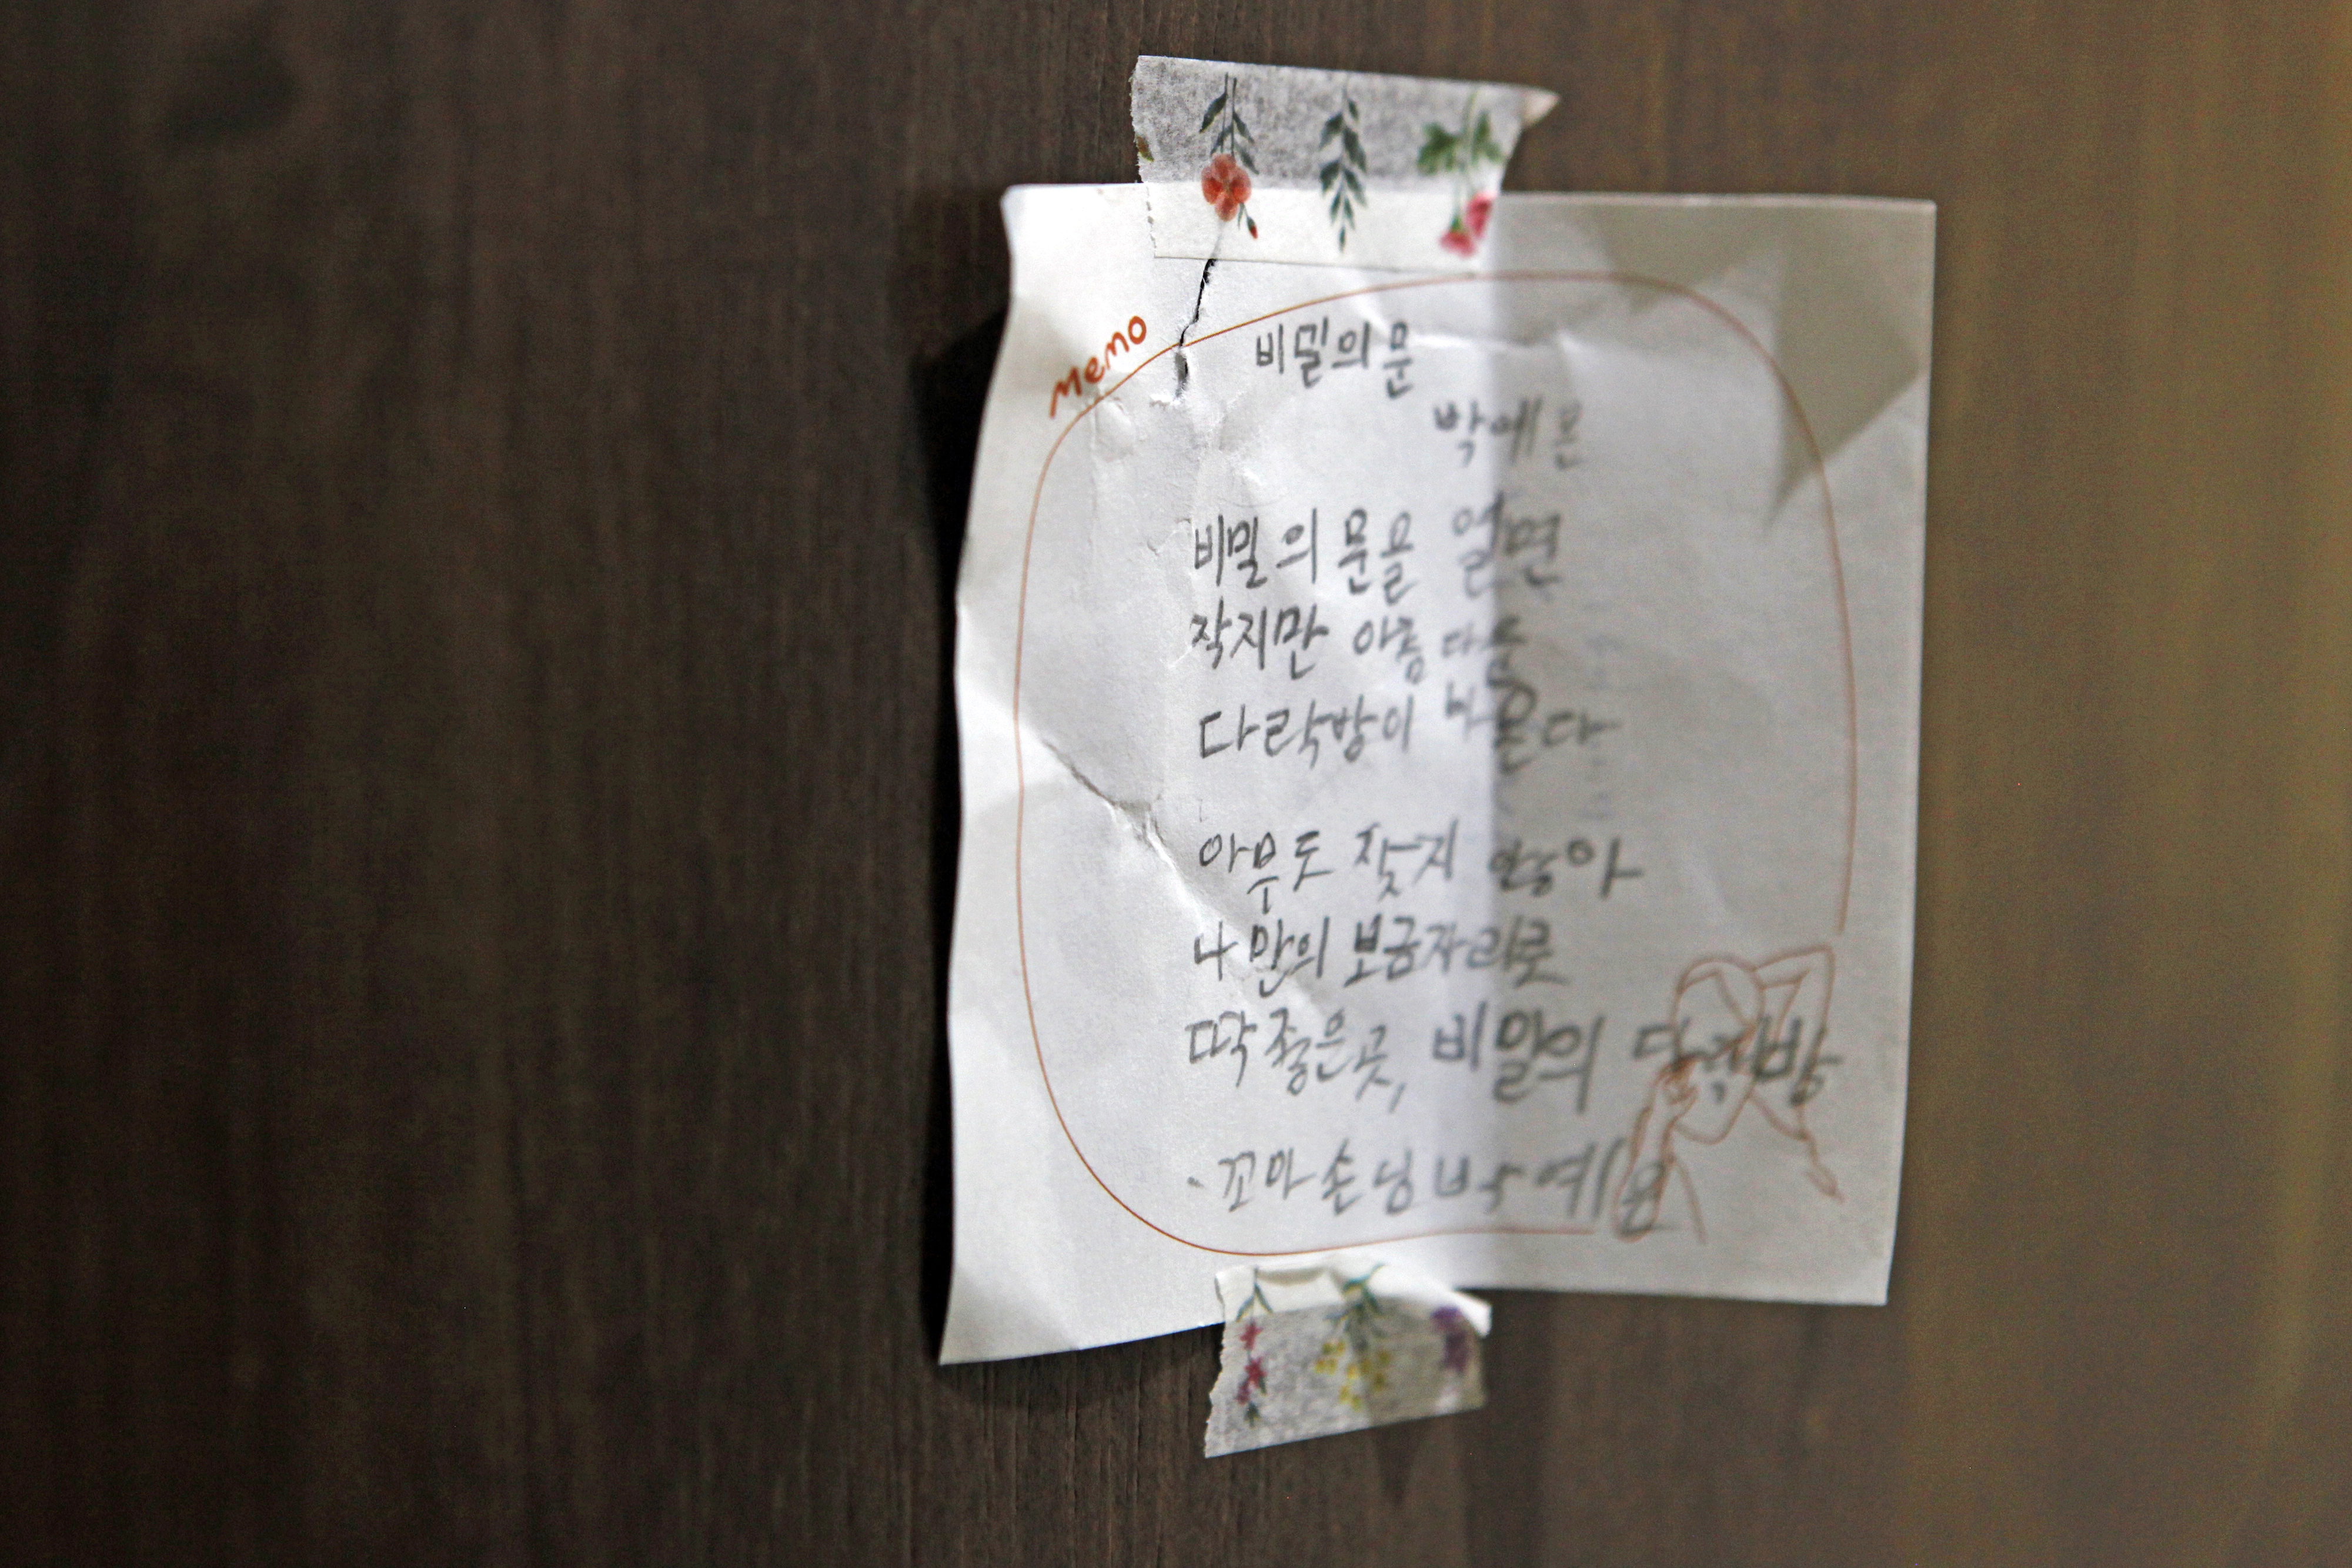 MEMO
비밀의 문
박예은
비밀의 문을 열면
작지만 아름다운
다락방이 나온다
아무도 찾지 않아
나만의 보금자리로
딱 좋은 곳, 비밀의 다락방
·꼬마손님 박예은